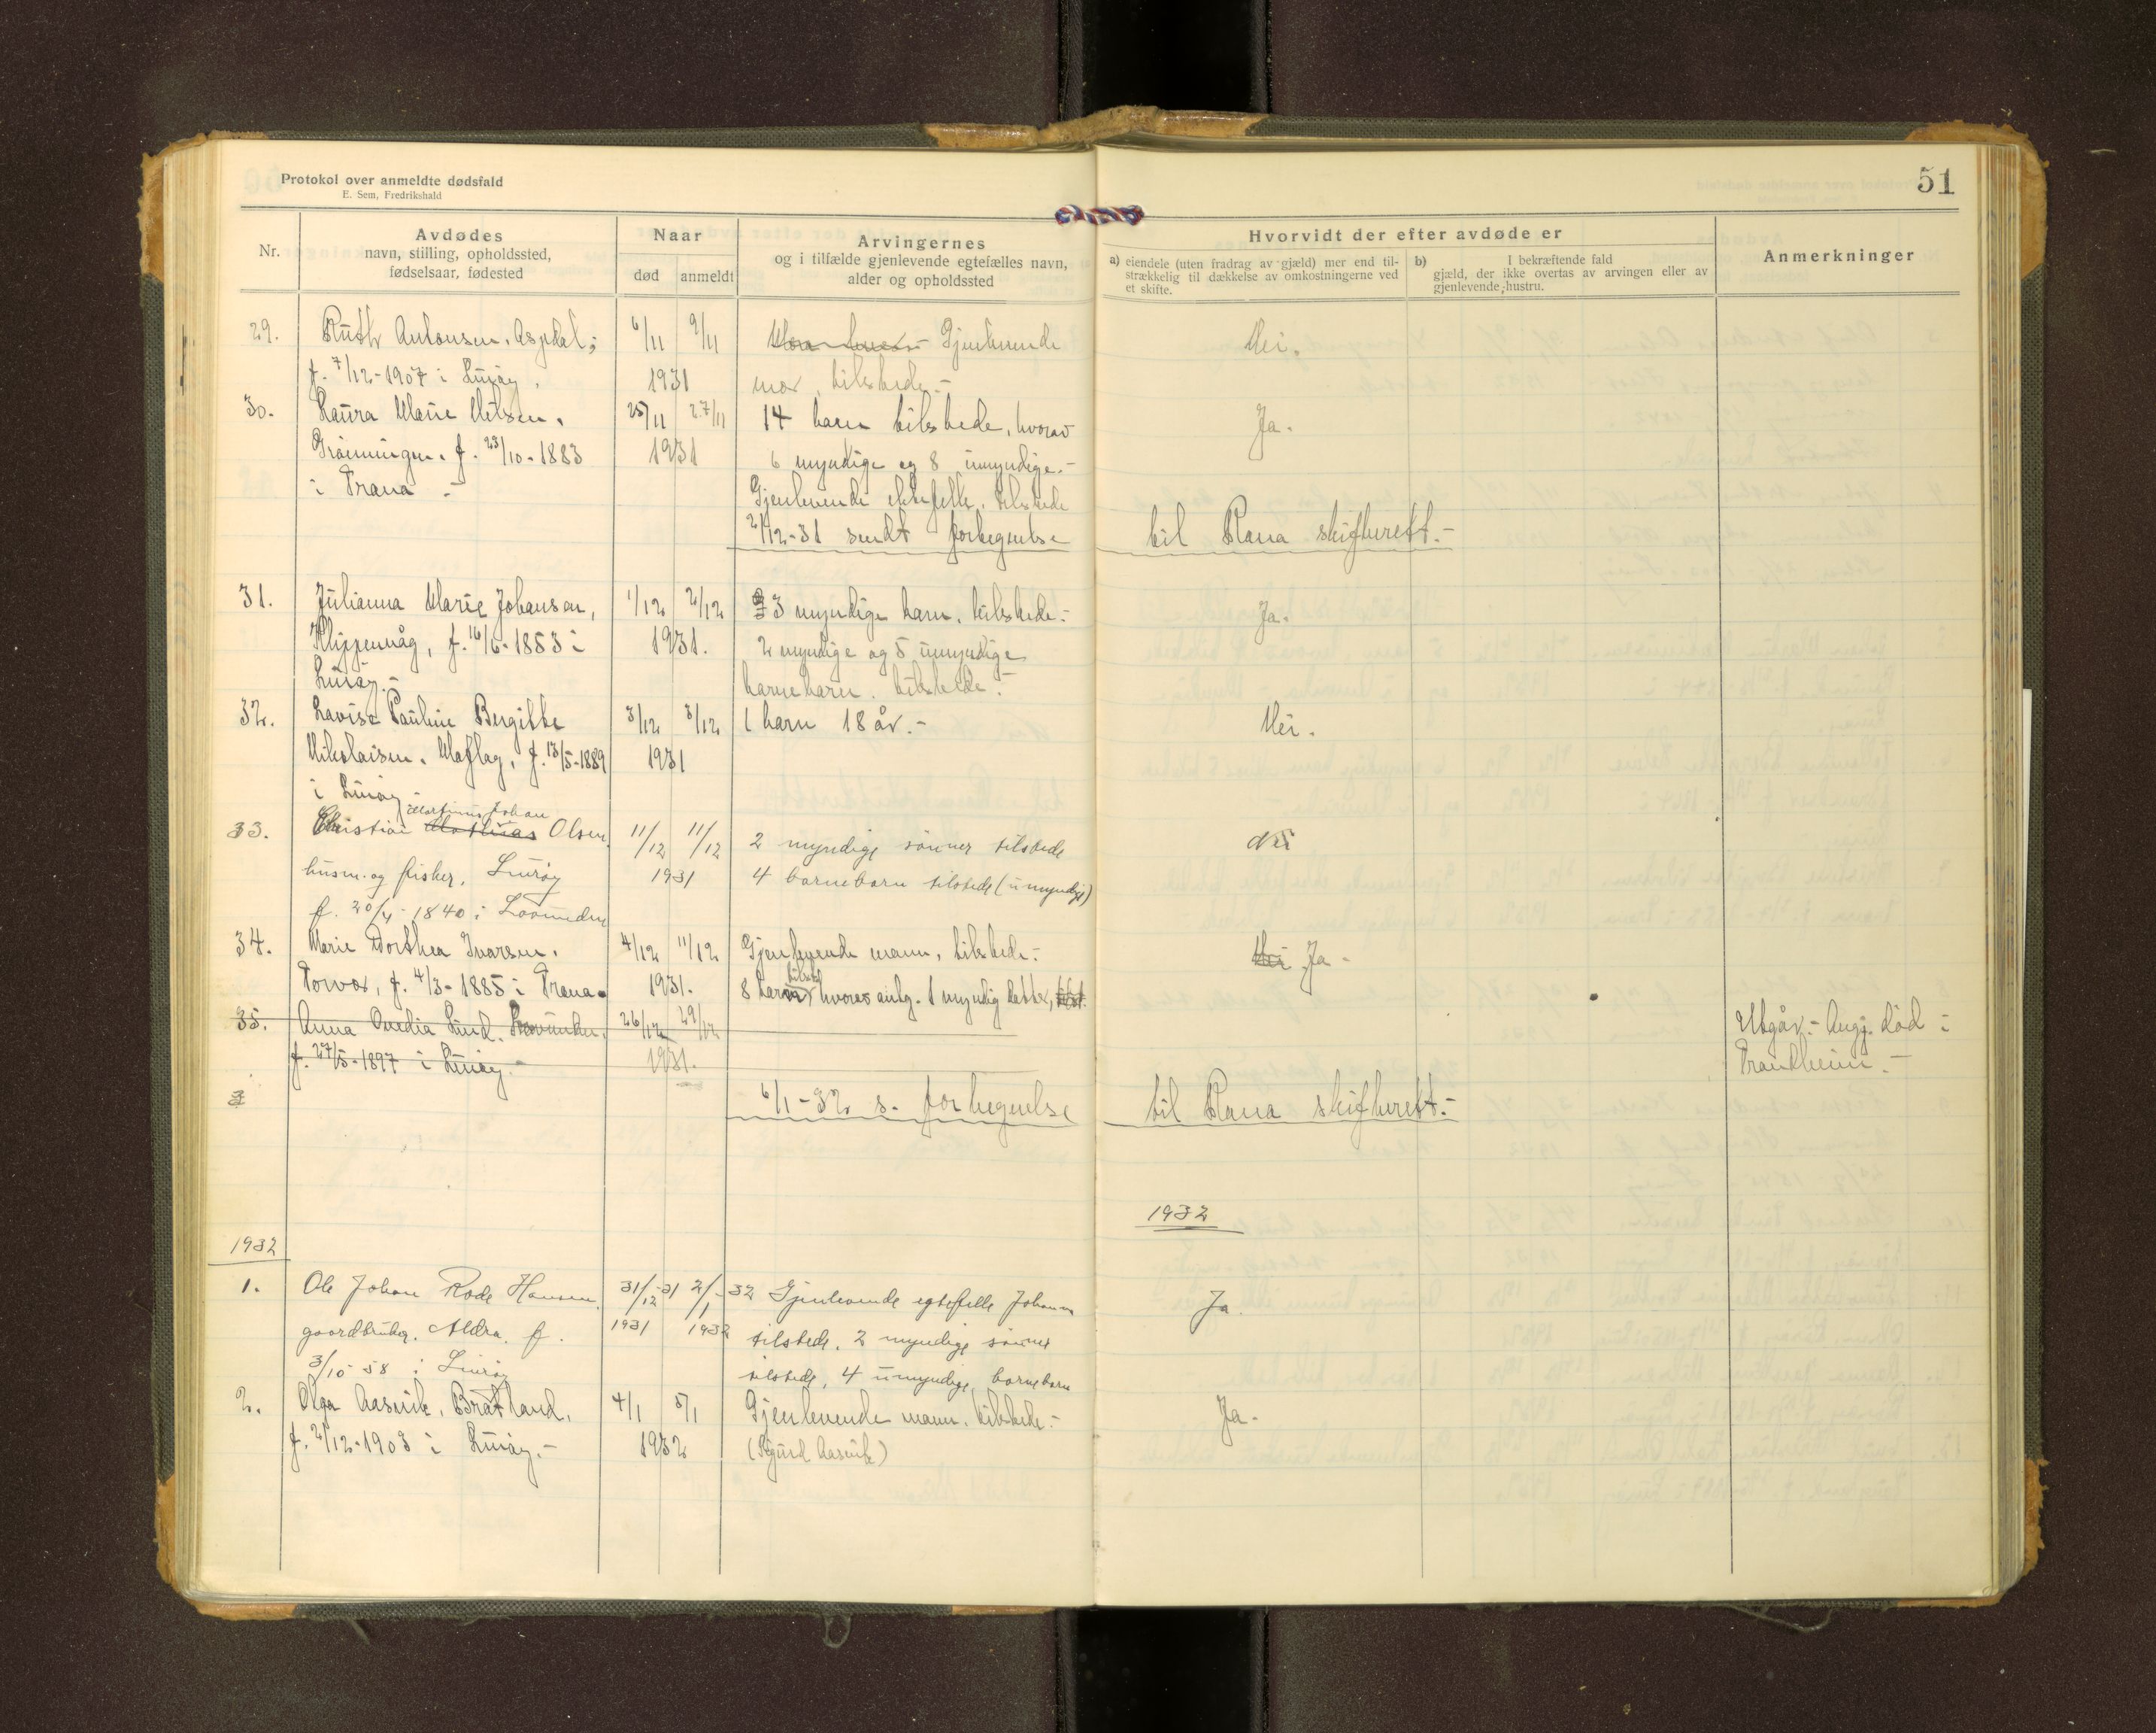 Protokol over anmeldte dødsfald
E. Sem, Fredrikshald
51
Nr.
Avdødes
navn, stilling, opholdssted,
fødselsaar, fødested
Naar
død
anmeldt
Arvingernes
og i tilfælde gjenlevende egtefælles navn,
alder og opholdssted
Hvorvidt der efter avdøde er
a) eiendele (uten fradrag av gjæld) mer end til-
strækkelig til dækkelse av omkostningerne ved
et skifte.
b) I bekræftende fald
gjæld, der ikke overtas av arvingen eller av
gjenlevende hustru.
Anmerkninger
29. Ruth Antonsen, Aspdal, 6/11 9/11 Gjenlevende Nei.
f. 7/12-1907 i Lurøy. 1931 mor, tilstede.-
30. Laura Marie Nilsen, 25/11 27/11 14 barn tilstede, hvorav Ja.
Grönningen. f. 23/10-1883 1931 6 myndige og 8 umyndige.-
i Træna - Gjenlevende ektefelle, tilstede
2/12-31 sendt fortegnelse til Rana skifterett.-
31. Julianna Marie Johansen, 1/12 2/12 3 myndige barn, tilstede.- Ja.
Klippenvåg, f. 16/6-1853 i 1931. 2 myndige og 5 umyndige
Lurøy.- barnebarn, tilstede.-
32. Lovise Pauline Bergitte 3/12 3/12 1 barn 18 år.- Nei.
Nikolaisen, Maflag, f. 13/5-1889 1931
i Lurøy
Martinus Johan
33. Christian Mathias Olsen, 11/12 11/12 2 myndige sönner tilstede Nei
husm. og fisker, Lurøy 1931 4 barnebarn tilstede (umyndige)
f. 20/4-1840 i Lovunden
34. Marie Dorthea Ivarsen, 4/12 11/12 Gjenlevende mann, tilstede.- Nei Ja-
tilsted
Torvær, f. 4/3-1885 i Træna. 1931. 8 barn hvorav antg. 1 myndig datter,
35. Anna Ovedia Lind. Lovunden. 26/12 29/12 Utgår.- Angj. död i
f. 27/5-1897 i Lurøy.- 1931. Trondheim.-
6/1-32 s. fortegnelse til Rana skifterett.-
1932
1932
1. Ole Johan Rode Hansen, 31/12-31 2/1-32 Gjenlevende egtefelle Johanna Ja.
gaardbruker, Aldra. f. 1931 1932 tilstede, 2 myndige sönner
3/10-58 i Lurøy tilstede, 4 umyndige barnebarn
2. Olga Aasvik, Bratland, 4/1 5/1 Gjenlevende mann, tilstede.- Ja.
f. 2/12-1903 i Lurøy.- 1932 (Sigurd Aasvik)